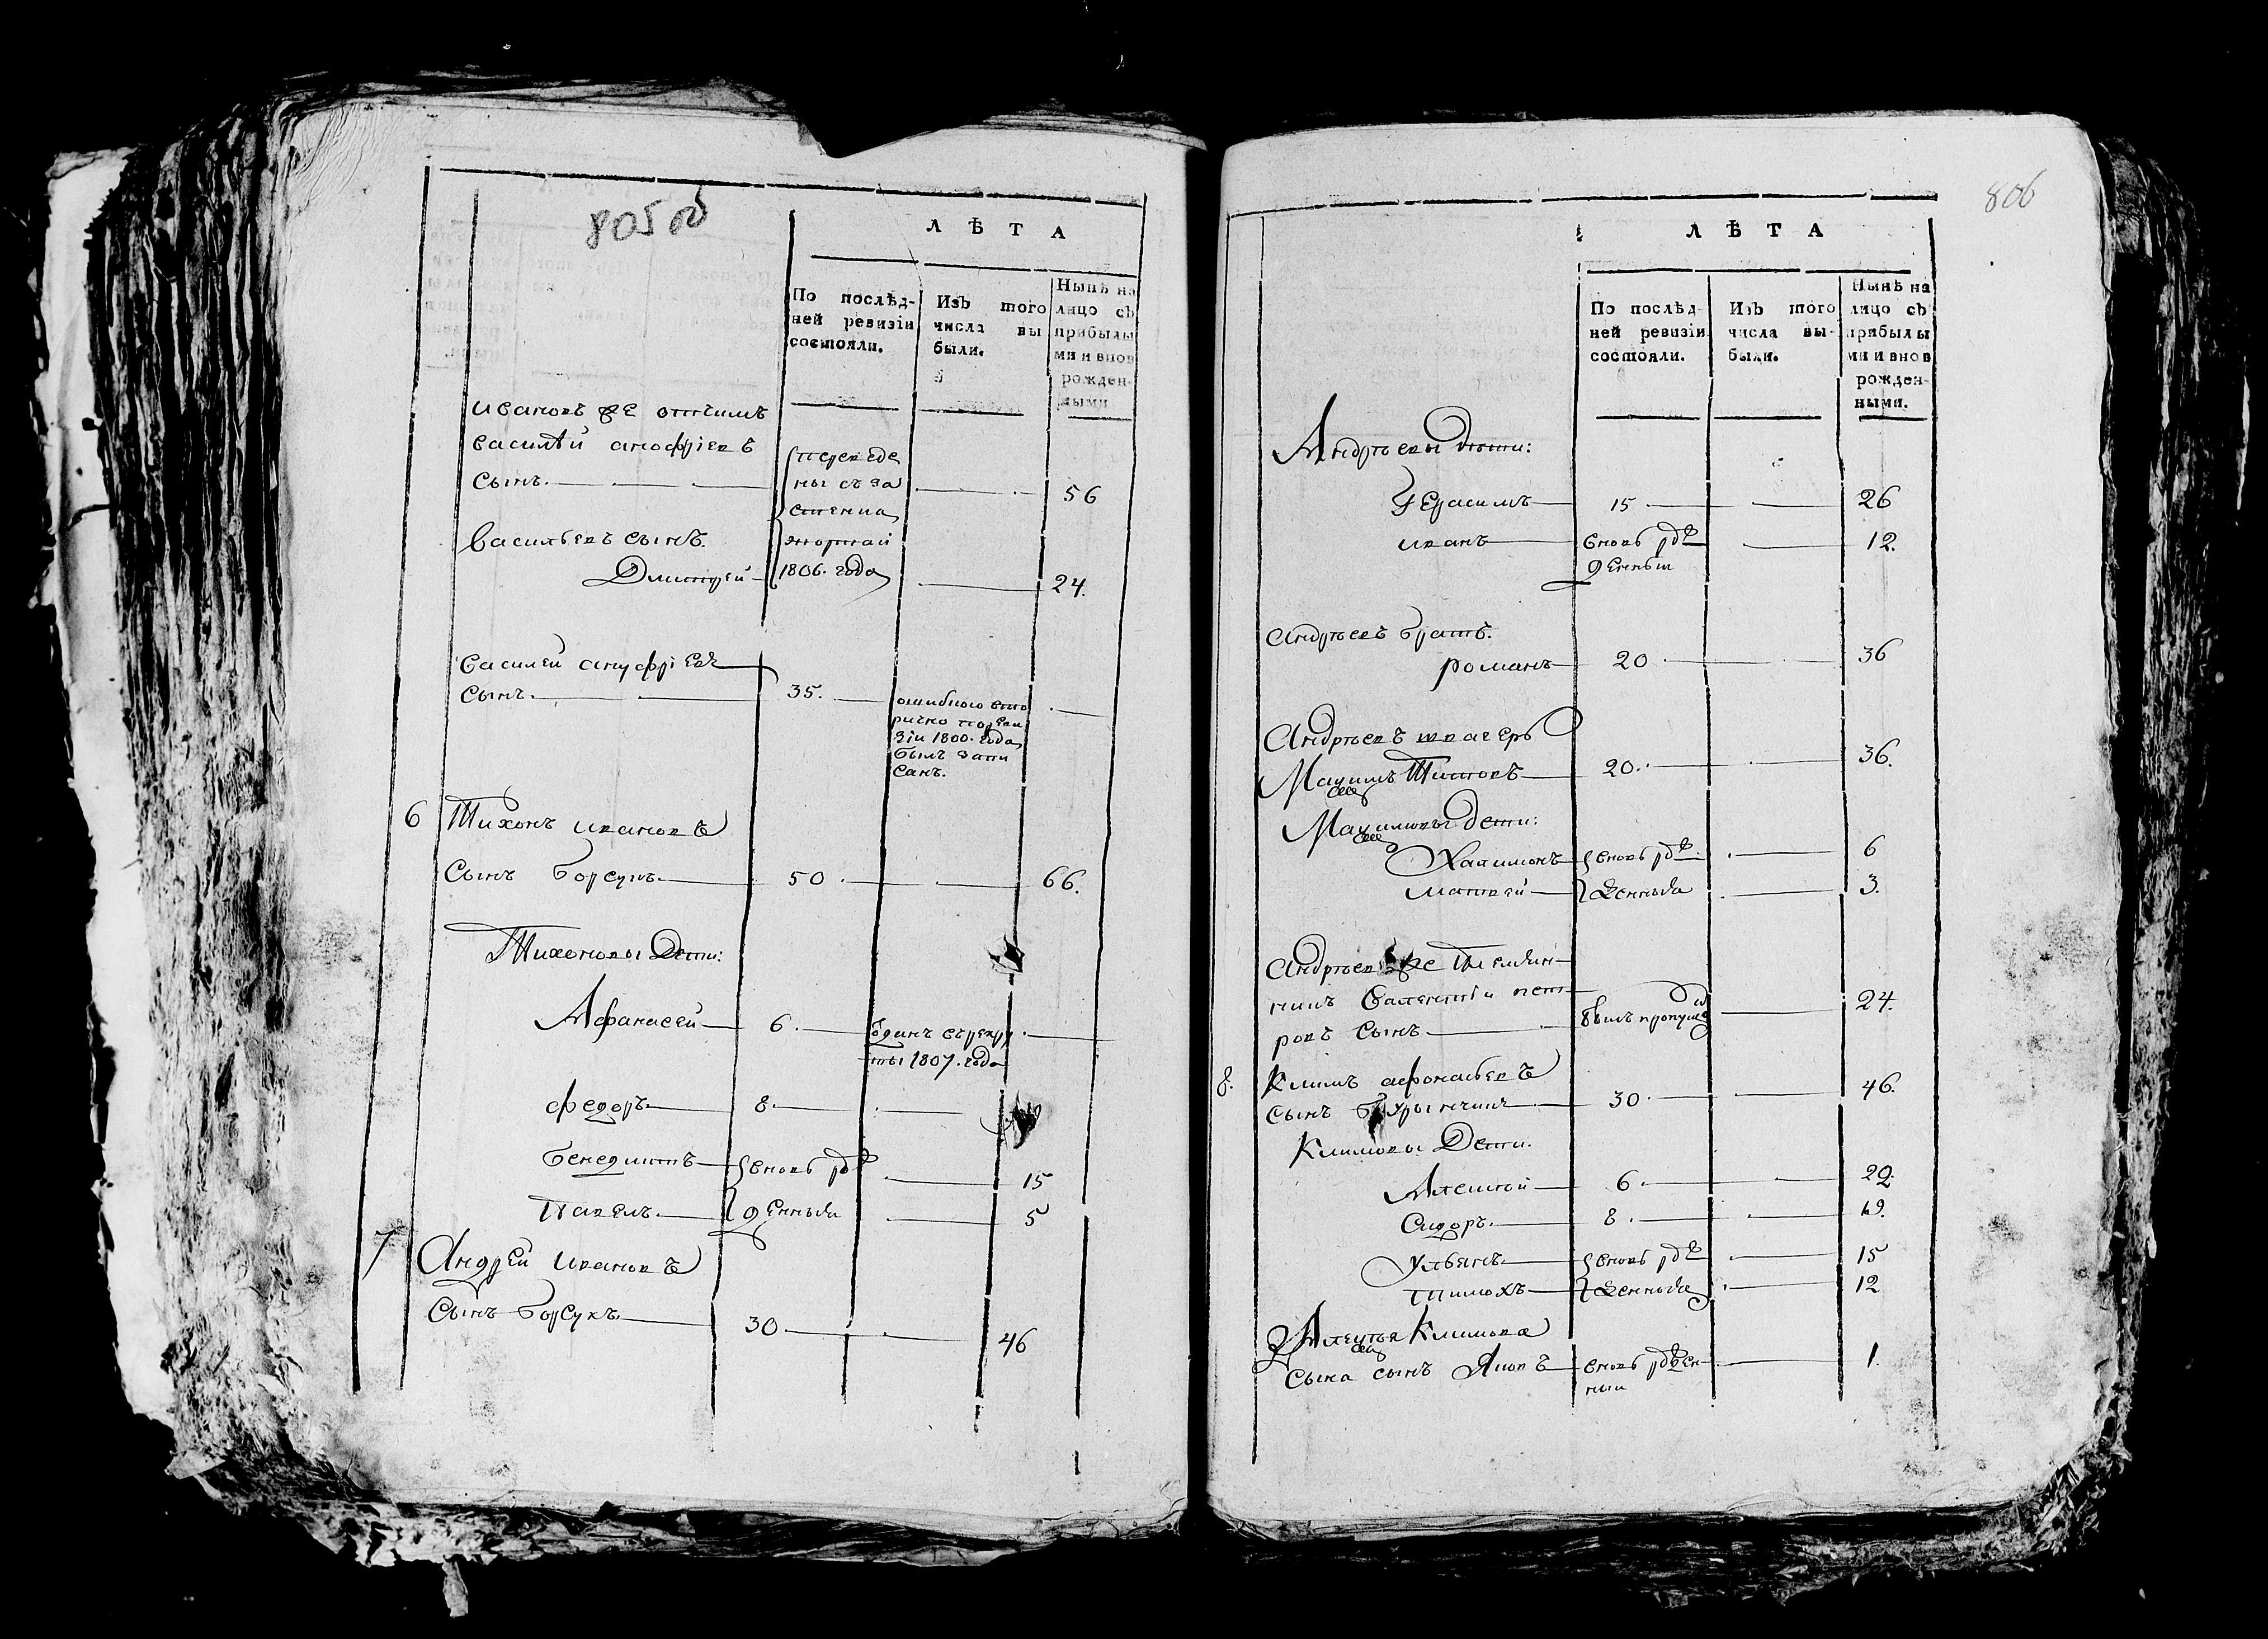 805 об
ЛѢТА
По послѣд-
ней ревизіи
состояли.
Изъ того
числа вы
были.
Нынѣ на
лицо съ
прибылы
ми и внов
рожден-
ными
Ивановъ же отчимъ
василѣй анофріевъ
сынъ. 56
переведе
ны съ за
1806. года
васильевъ сынъ.
Дмитрей 24.
василей ануфріевъ
сынъ. 35.
ошибкою вто
рично по реви
зіи 1800. года
былъ запи
санъ.
6 Тихонъ ивановъ
сынъ борсукъ 50 66.
Тихоновы дети:
Афанасей 6.
ты 1807. года
федоръ 8.
бенедиктъ вновь рож 15
павелъ. денныя 5
7 Андрей ивановъ
сынъ борсукъ 30 46
806
ЛѢТА
По послѣд-
ней ревизіи
состояли.
Изъ того
числа вы-
были.
Нынѣ на
лицо съ
прибылы
ми и внов
рожден-
ными.
Андрѣевы дѣти:
Герасимъ 15 26
иванъ вновь рож 12.
денный
Андрѣевъ братъ.
романъ 20 36
Андрѣевъ швагеръ
Максимъ Титовъ 20. 36.
Максимовы дети:
Халимонъ вновь рож 6
матвей денныя 3.
Андрѣевъ же племян-
никъ валентій пет
ровъ сынъ былъ пропущ 24.
8. Климъ афонасьевъ
сынъ 30 46.
Климовы дети.
Алексей 6 22.
Сидоръ. 8. 19.
Ульянъ вновь рож 15
тимохъ денныя 12
Алексѣя Климова
сына сынъ Яковъ вновь рожден 1.
ный